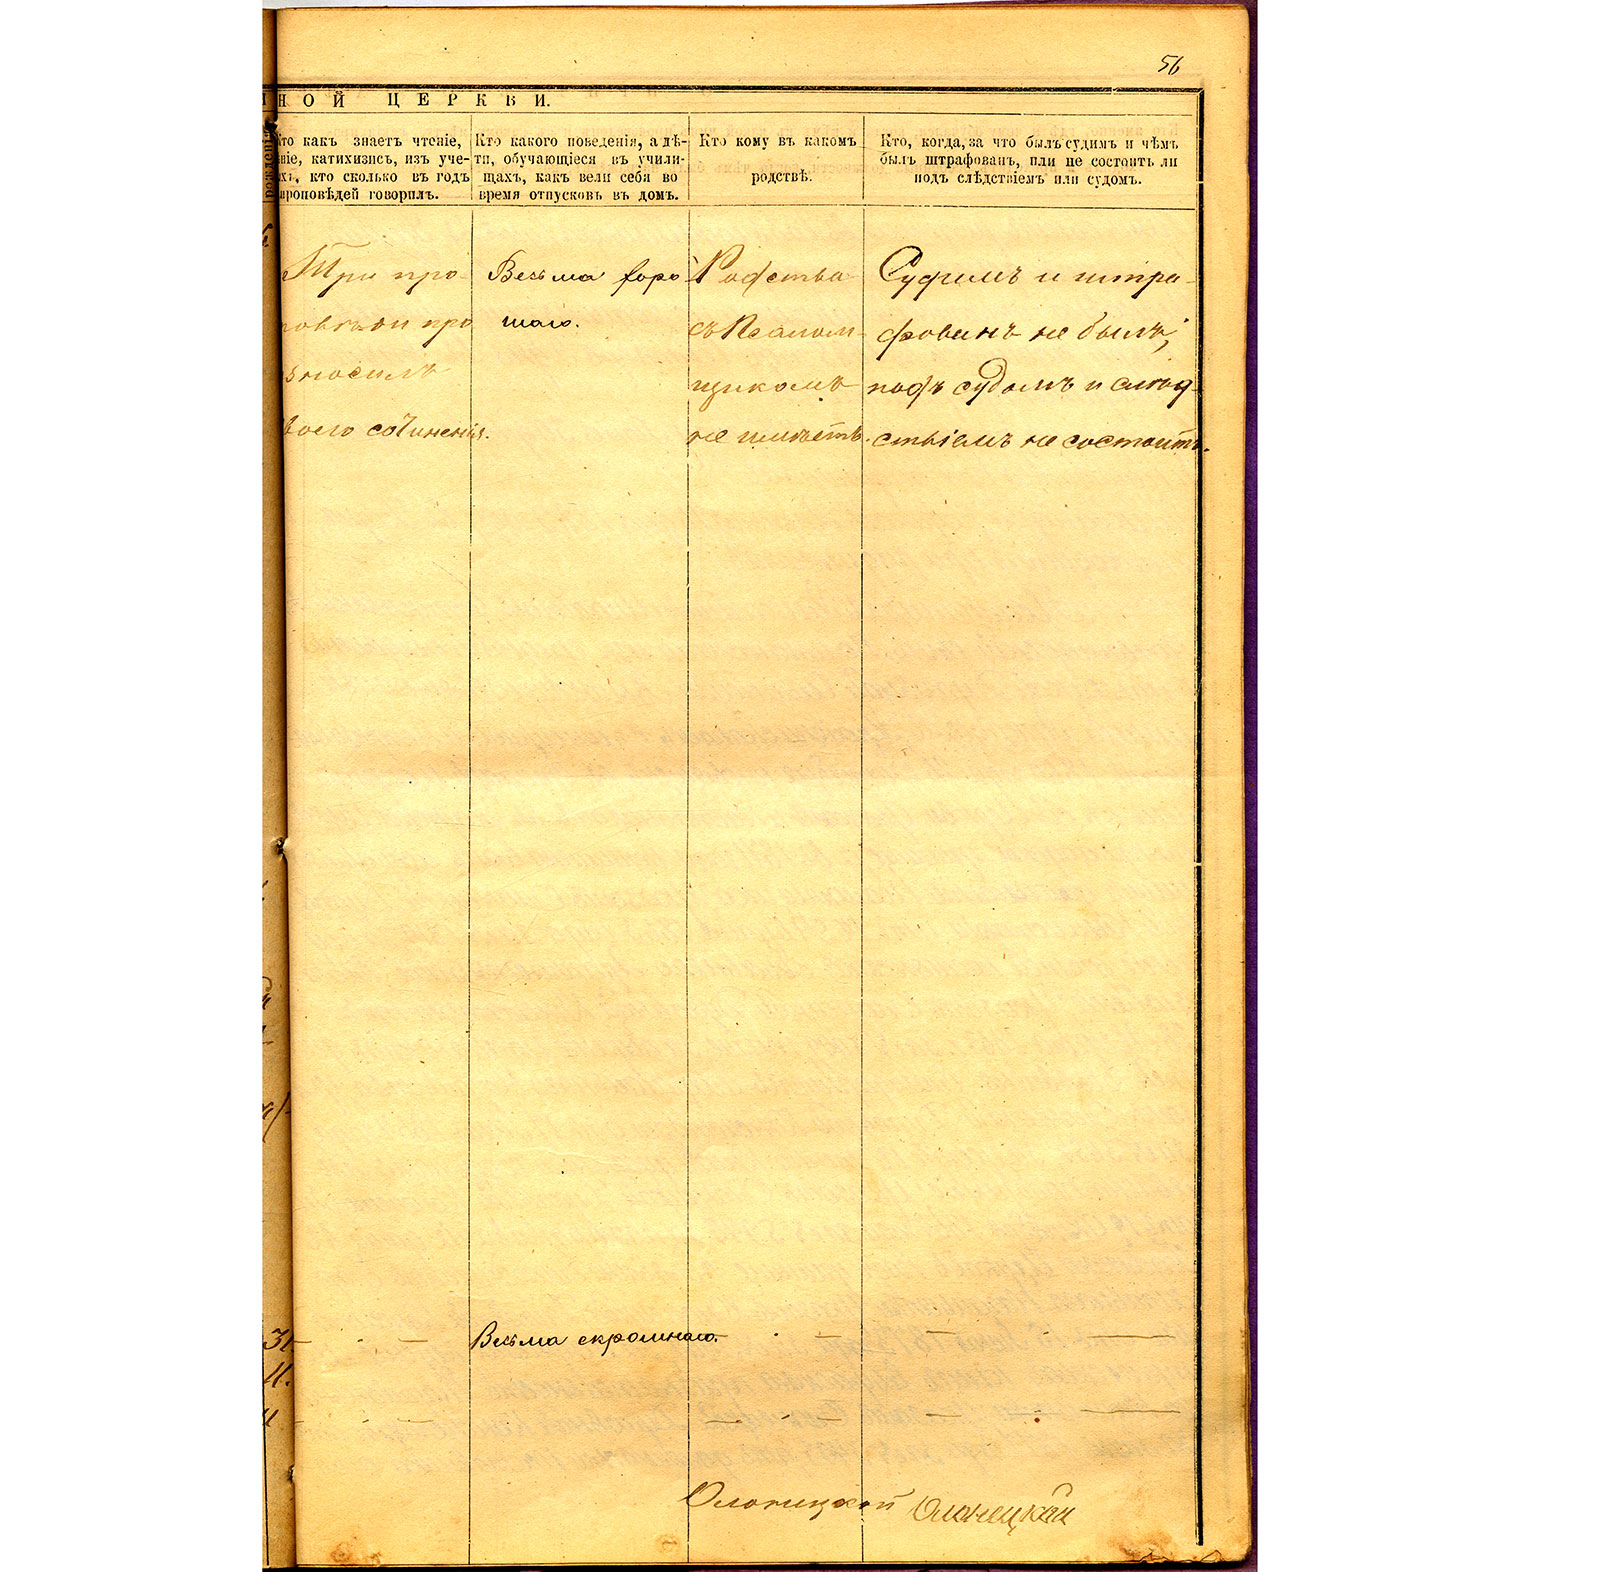 56
НОЙ ЦЕРКВИ.
Кто какъ знаетъ чтеніе,
ніе, катихизисъ, изъ уче-
хъ, кто сколько въ годъ
проповѣдей говорилъ.
Кто какого поведенія, а дѣ-
ти, обучающіеся въ учили-
щахъ, какъ вели себя во
время отпусковъ въ домъ.
Кто кому въ какомъ
родствѣ.
Кто, когда, за что былъ судимъ и чѣмъ
былъ штрафованъ, или не состоитъ ли
подъ слѣдствіемъ или судомъ.
Три про-
повѣди про
износилъ
своего сочиненія.
Весьма хоро
шаго.
Родства
съ Псалом-
щикомъ
не имѣетъ.
Судимъ и штра-
фованъ не былъ;
подъ судомъ и слѣд-
ствіемъ не состоитъ.
31
11.
11
Весьма скромнаго.
Олонецкій Олонецкій